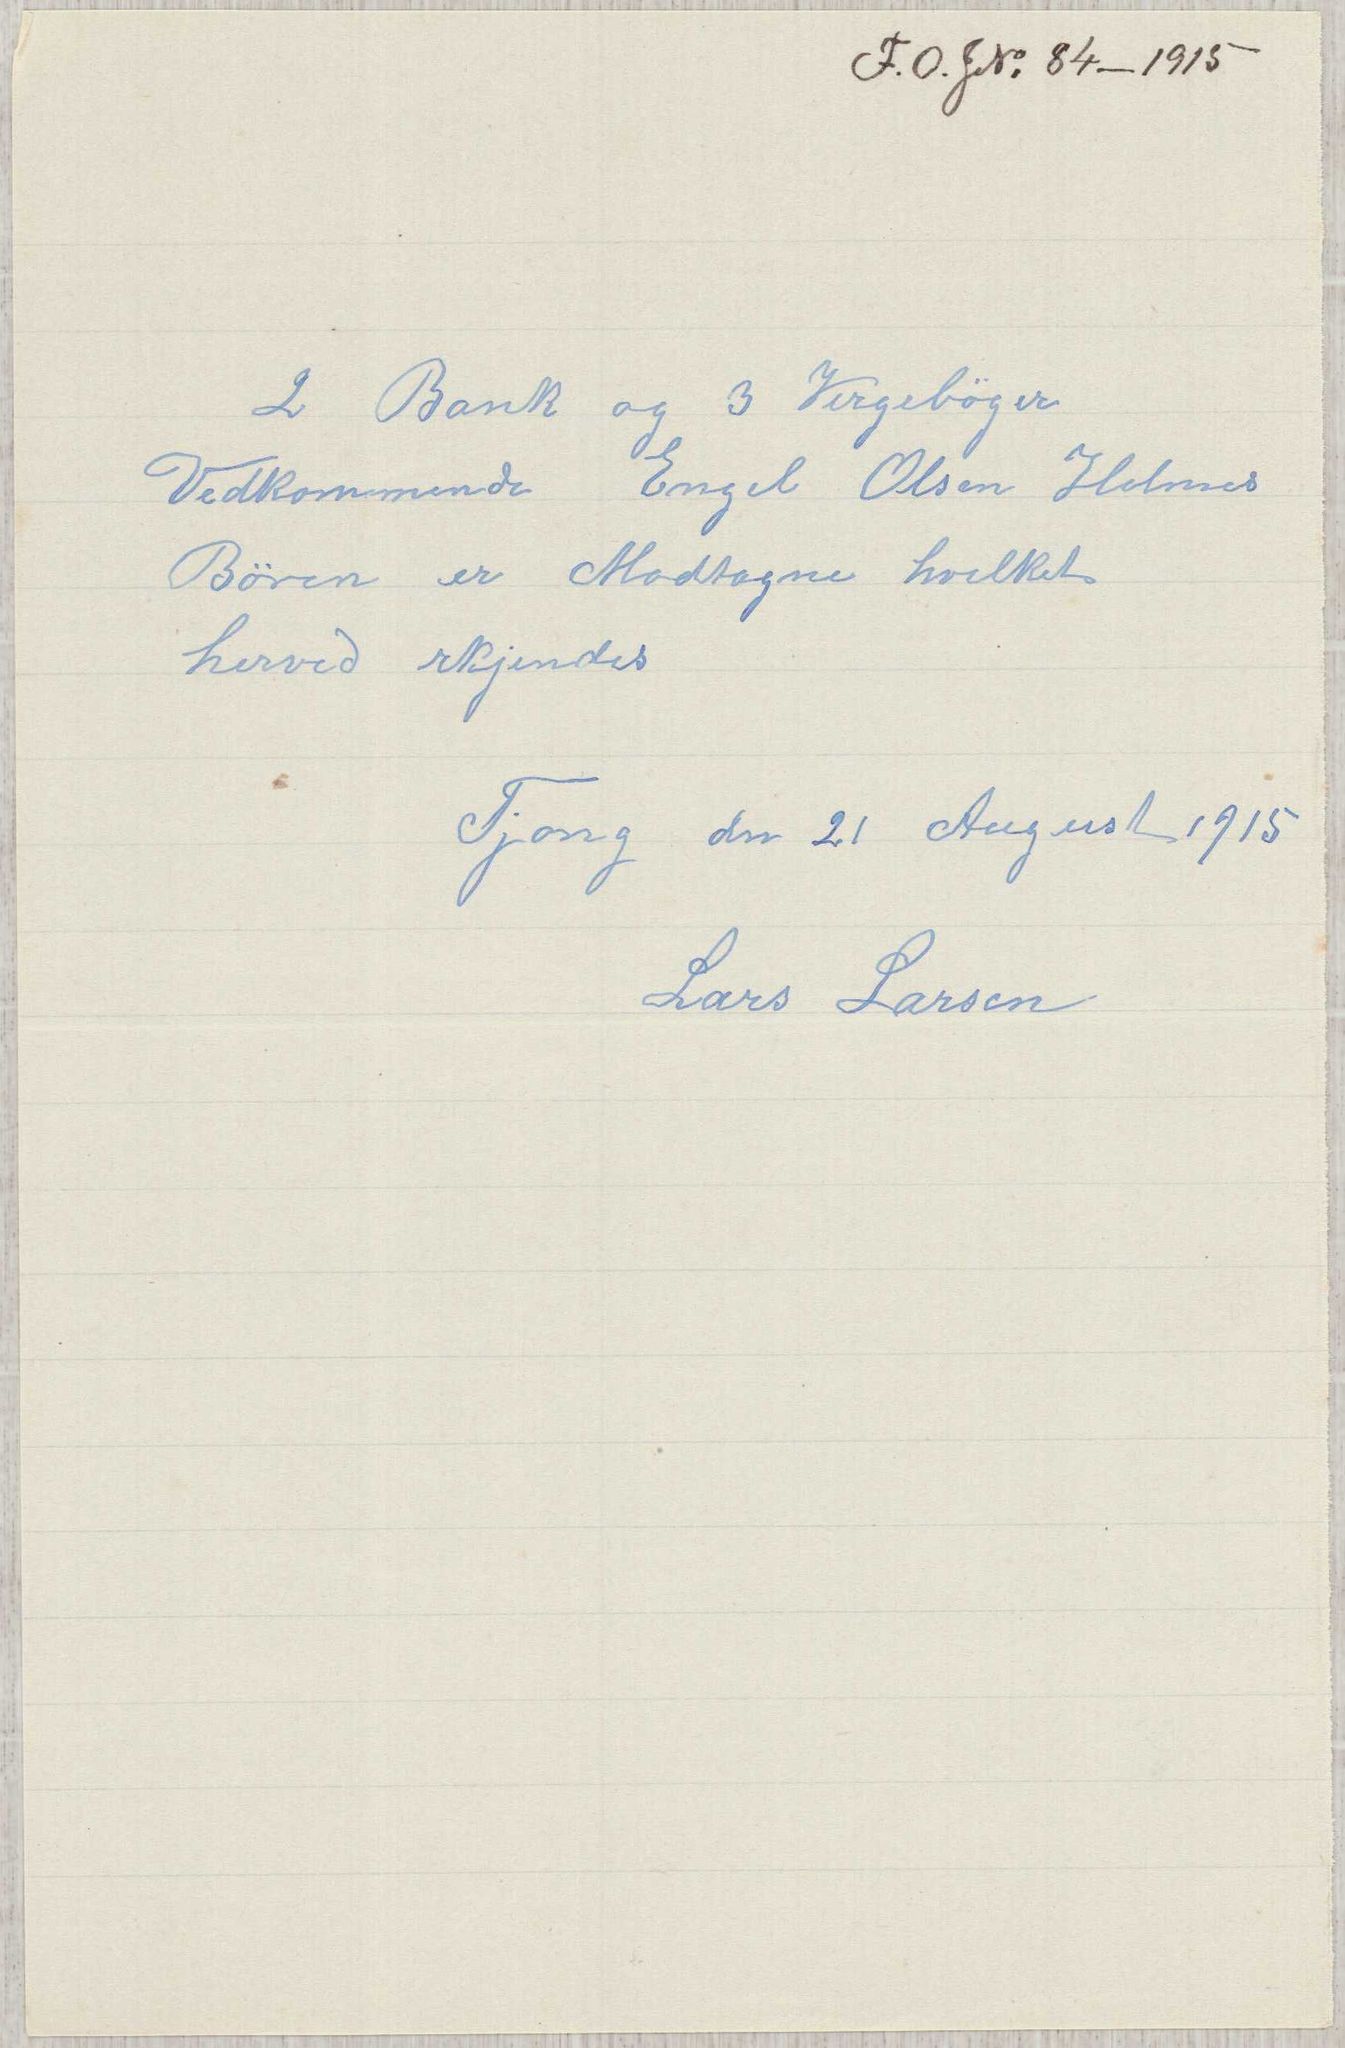 F.O.JNo. 84–1915
2 Bank og 3 Vergeböger
Vedkommende Engel Olsen Helnes
Bören er Modtagne hvilket
herved rkjendes
Tjong dn 21 August 1915
Lars Larsen